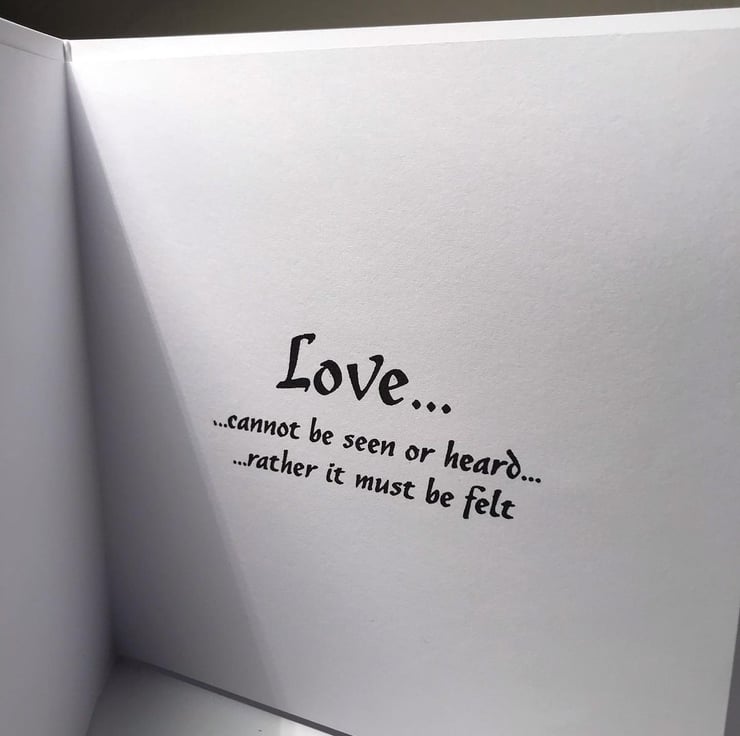 Love...
...cannot be seen or heard...
...rather it must be felt